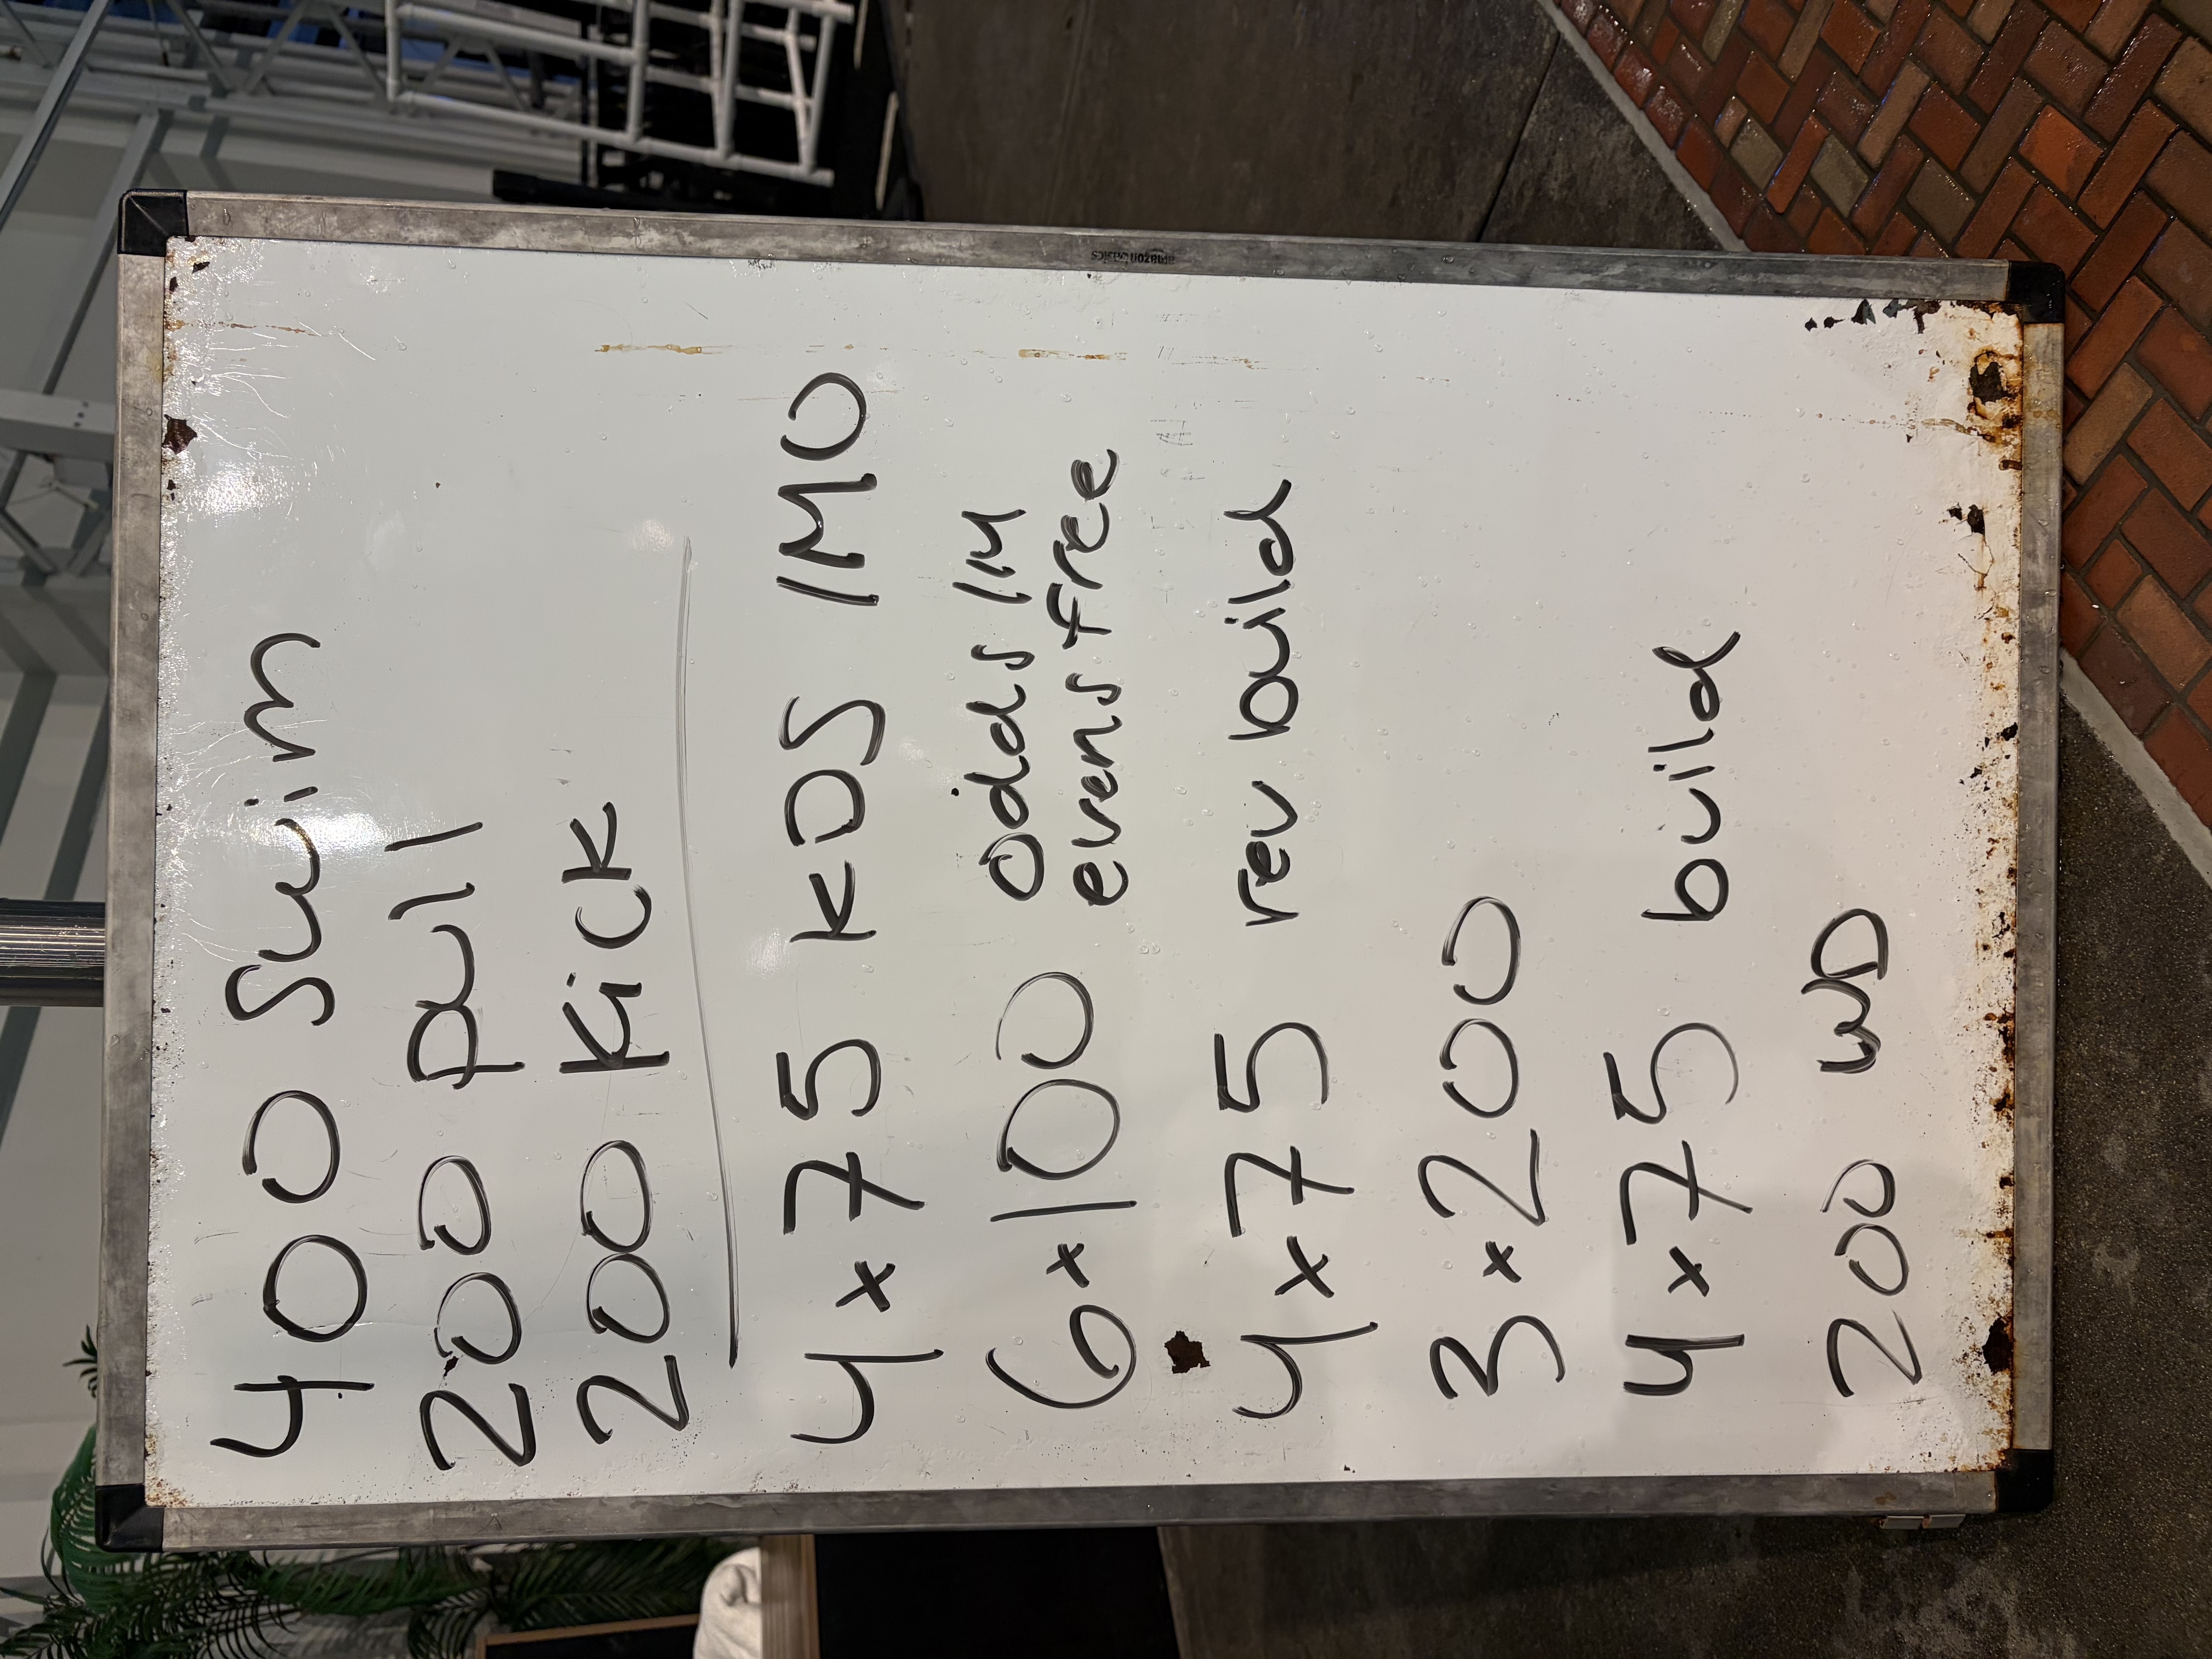 400 Swim
200 pull
200 Kick
4x75 KDS IMO
6x100 odds IM
evens free
4x75 rev build
3x200
4x75 build
200 WD
amazonbasics